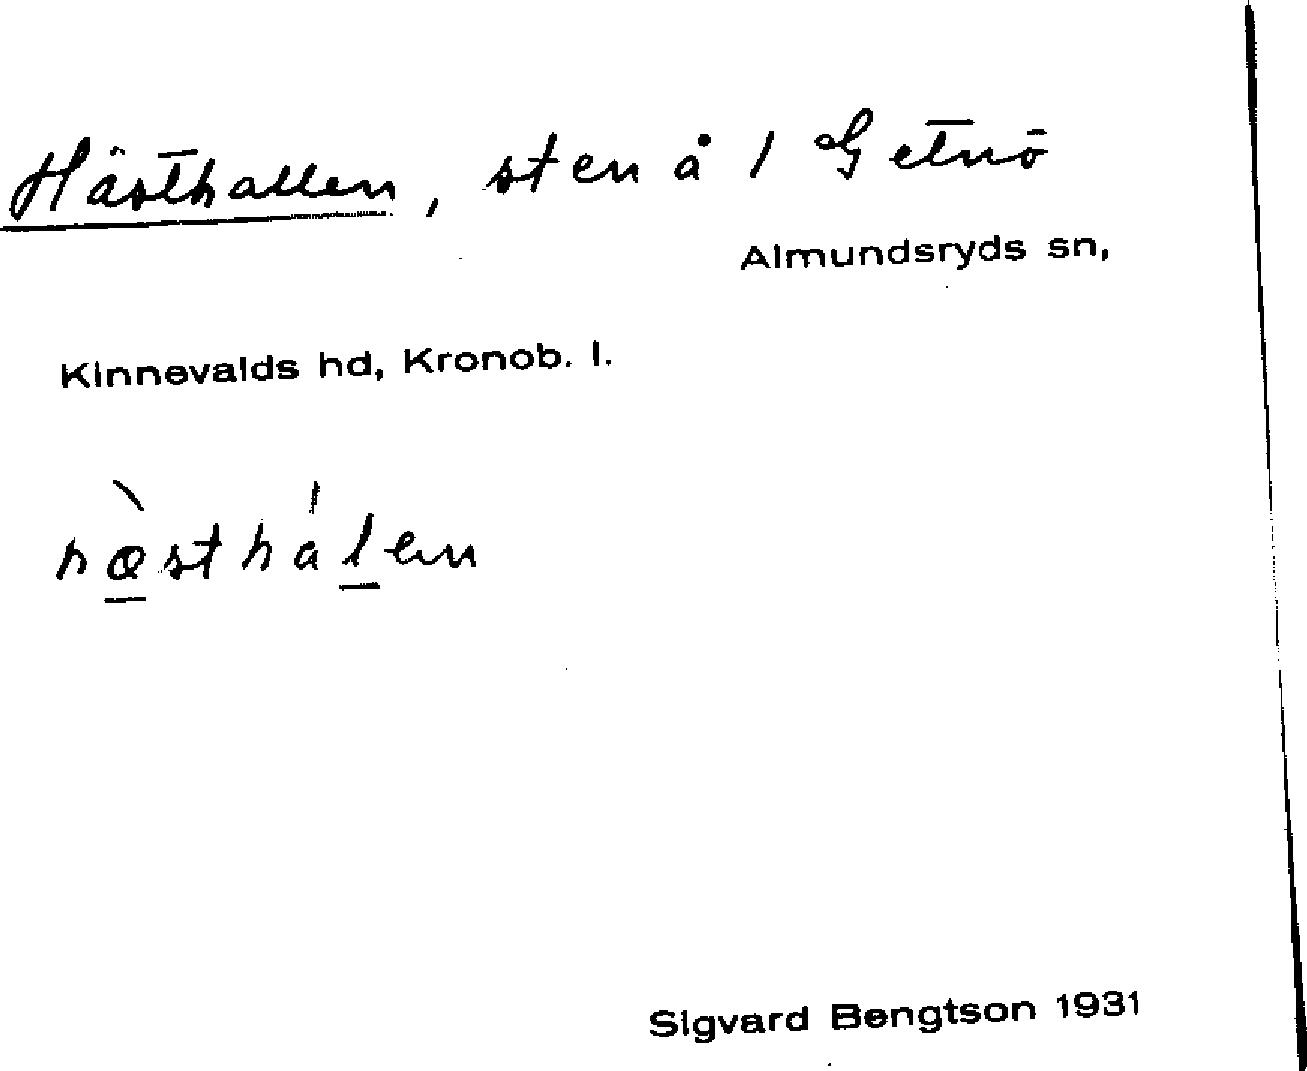 Hästhallen, sten å 1 Getnö
Almundsryds sn,
Kinnevalds hd, Kronob. l.
hæ̀sthálen
Sigvard Bengtson 1931